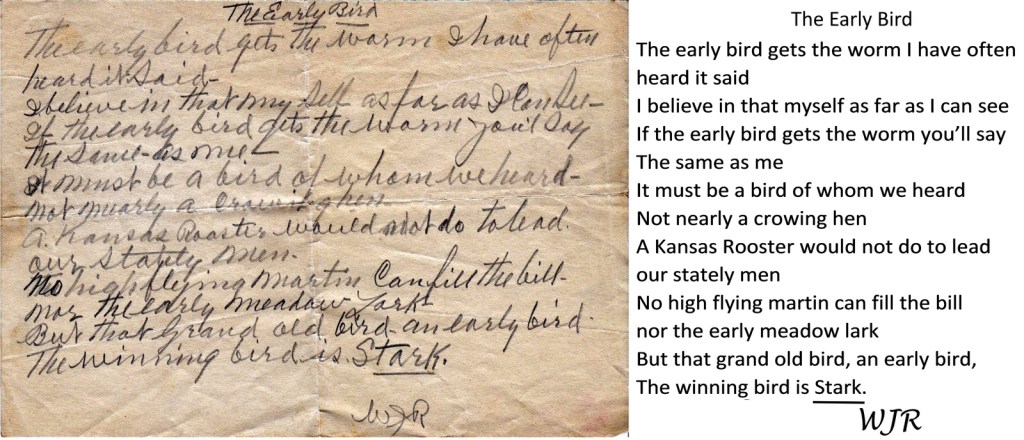 The Early Bird
The early bird gets the worm I have often
heard it said-
I believe in that my self as far as I can see-
If the early bird gets the worm you'l say
the same as me-
It must be a bird of whom we heard-
not nearly a crowing hen
A. Kansas Rooster would not do to lead.
our stately men.
No high flying martin Can fill the bill-
nor the early meadow Lark
But that grand old bird an early bird.
The winning bird is Stark.
WJR
The Early Bird
The early bird gets the worm I have often
heard it said
I believe in that myself as far as I can see
If the early bird gets the worm you’ll say
The same as me
It must be a bird of whom we heard
Not nearly a crowing hen
A Kansas Rooster would not do to lead
our stately men
No high flying martin can fill the bill
nor the early meadow lark
But that grand old bird, an early bird,
The winning bird is Stark.
WJR